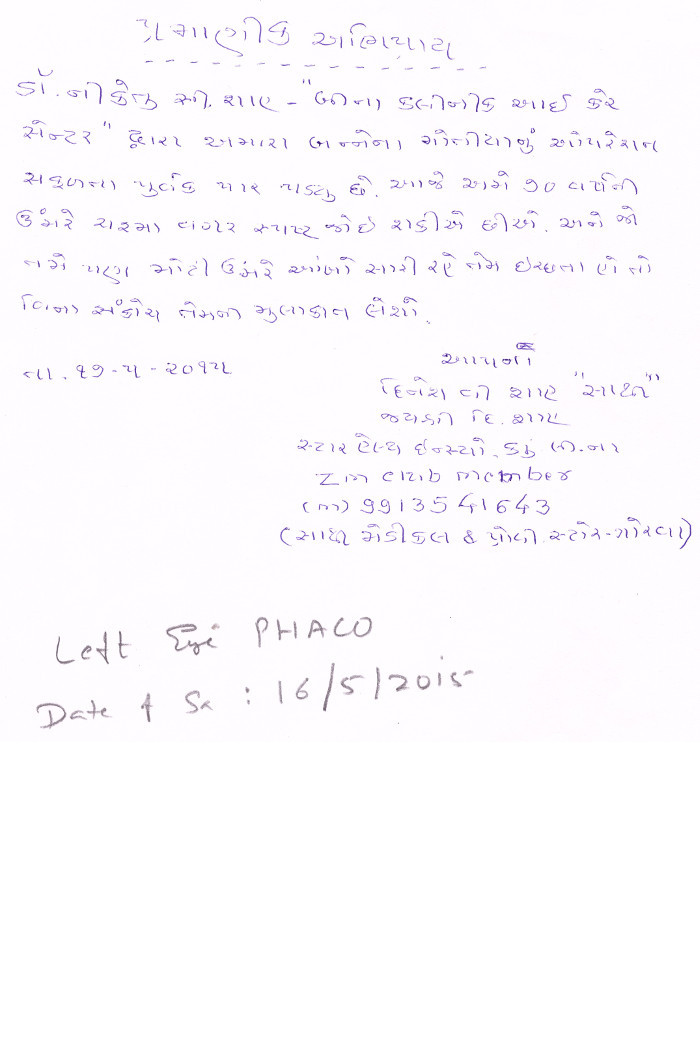 પ્રમાણીક અભિપ્રાય
ડૉ. નીકેતુ સી. શાહ - "બીના કલીનીક આઈ કેર
સેન્ટર" દ્વારા અમારા બન્નેના મોતીયાનું ઓપરેશન
સફળતા પુર્વક પાર પડ્યુ છે. આજે અમે ૭૦ વર્ષની
ઉંમરે ચશ્મા વગર સ્પષ્ટ જોઈ શકીએ છીએ. અને જો
તમે પણ મોટી ઉંમરે આંખો સારી રહે તેમ ઇચ્છતા હો તો
વિના સંકોચ તેમની મુલાકાત લેશો.
તા. ૧૭-૫-૨૦૧૫
આપનો
દિનેશ વી શાહ
જયશ્રી દિ. શાહ
સ્ટાર હેલ્થ ઇન્સ્યો.
Zim club member
(m) 9913541643
મેડીકલ & પ્રોવી. સ્ટોર-ગોરવા)
Left Eye PHACO
Date of Sx : 16/5/2015